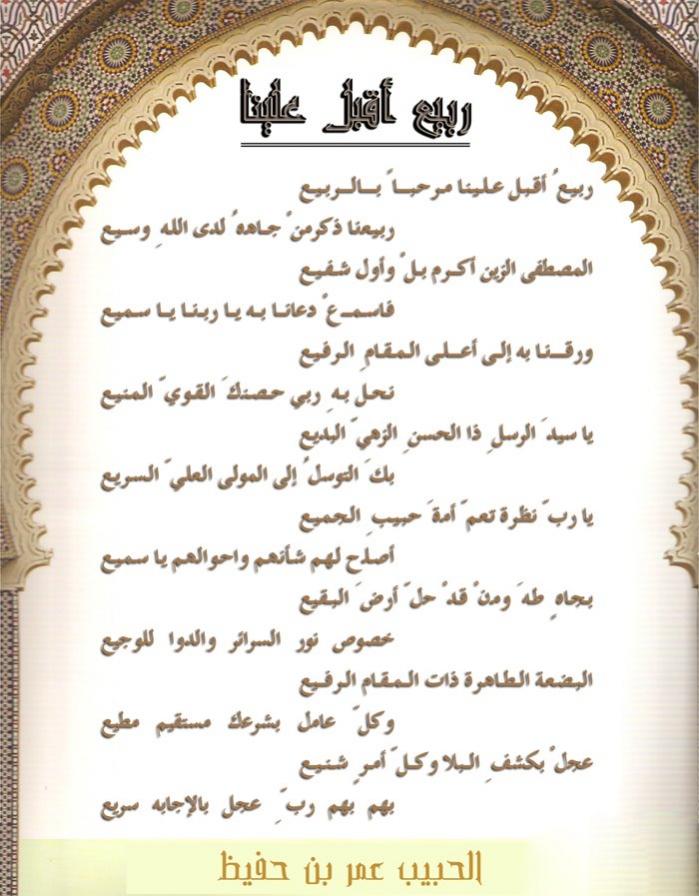 ربيع أقبل علينا
ربيعُ أقبل علينا مرحباً بالربيع
ربيعنا ذكرمنْ جاههُ لدى اللهِ وسيع
المصطفى الزين أكرم بلْ وأول شفيع
فاسمعْ دعانا به يا ربنا يا سميع
ورقنا به إلى أعلى المقامِ الرفيع
نحل بهِ ربي حصنكَ القويّ المنيع
يا سيدَ الرسلِ ذا الحسنِ الزهيّ البديع
بكَ التوسلُ إلى المولى العليّ السريع
يا ربّ نظرة تعمّ أمةَ حبيبِ الجميع
أصلح لهم شأنهم واحوالهم يا سميع
بجاهِ طهَ ومنْ قدْ حلّ أرضَ البقيع
خصوص نور السرائر والدوا للوجيع
البضعة الطاهرة ذات المقام الرفيع
وكلّ عامل بشرعك مستقيم مطيع
عجلْ بكشفِ البلا وكلّ أمرٍ شنيع
بهم بهم ربِّ عجل بالإجابه سريع
الحبيب عمر بن حفيظ